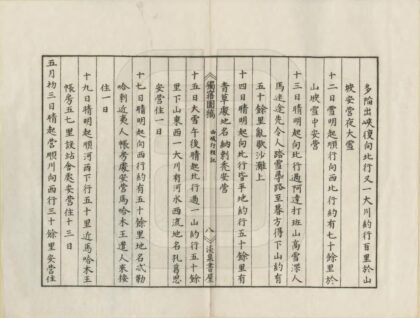 多險出峽復向北行又一大川約行百里於山
坡安營夜大雪
十二日雪晴起順行向西北行約有七十餘里於
山坡雪中安營
十三日晴明起向北行過阿達打班山高雪深人
馬迷途先令人踏雪尋路至暮方得下山約有
五十餘里亂歇沙灘上
十四日晴明起向北行皆平地約行五十餘里有
青草處地名納剌禿安營
《獨寤園稿》 西域行程記 八 淡泉書屋
十五日大雪午後晴起北行過一山約行五十餘
里下山東西一大川有河水西流地名孔葛思
安營住一日
十七日晴明起向西行約有五十餘里地名忒勒
哈剌近夷人帳房處安營馬哈木王遣人來接
住一日
十九日晴明起順河西下行五十里近馬哈木王
帳房五七里設站舍處安營住十三日
五月初三日晴起營順川向西行三十餘里安營住